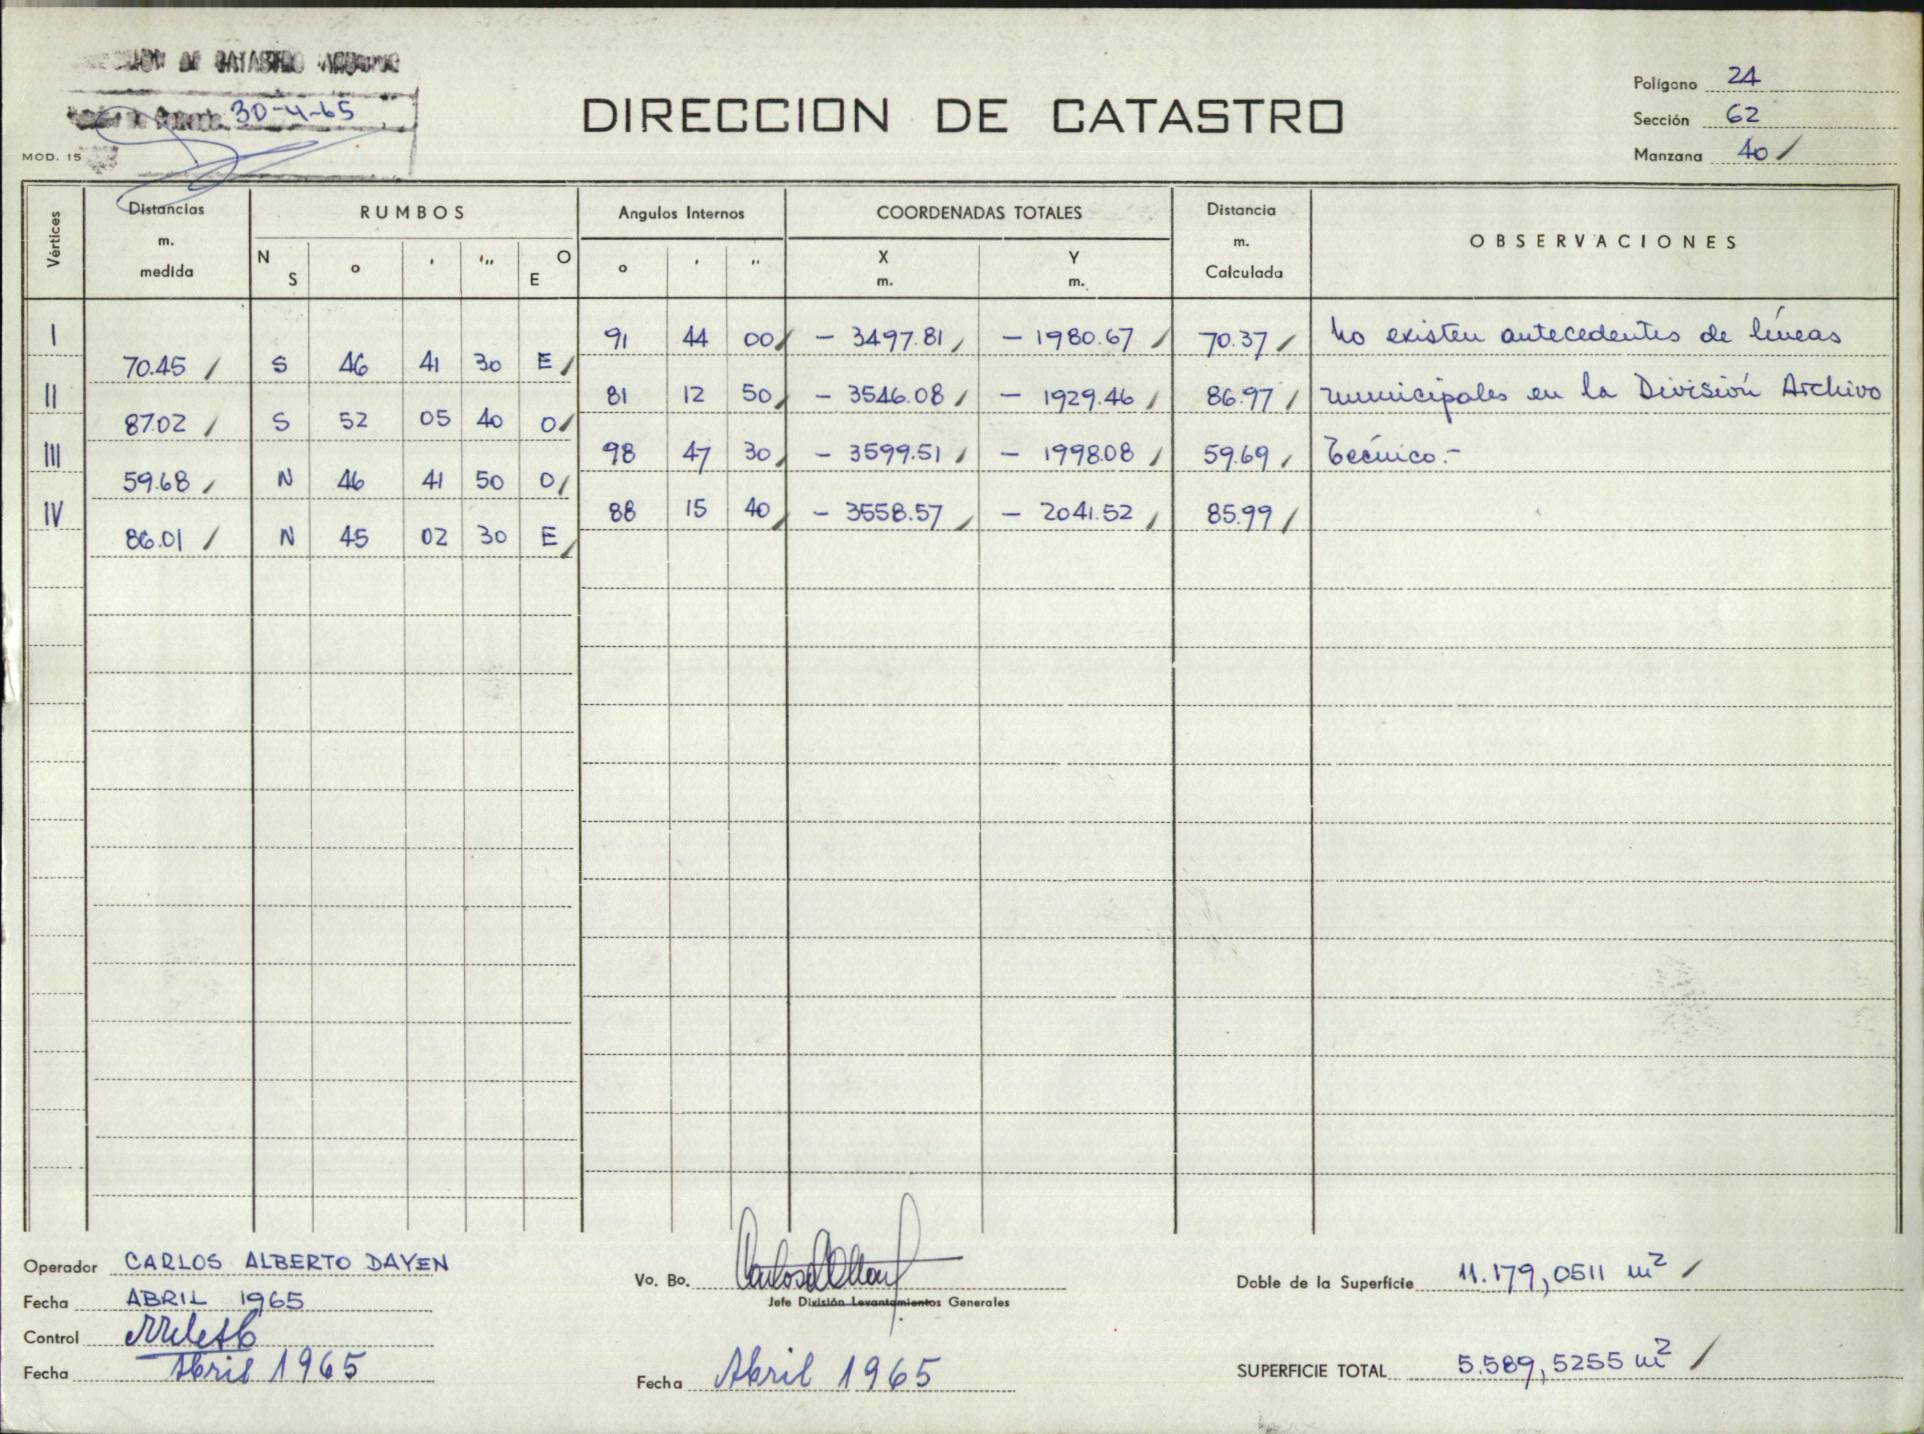 DE CATASTRO
30-4-65
MOD. 15
DIRECCION DE CATASTRO
Polígono 24
Sección 62
Manzana 40
Vértices
Distancias m. medida
RUMBOS
N S ° ' '' O E
Angulos Internos
° ' ''
COORDENADAS TOTALES
X m. Y m.
Distancia m. Calculada
OBSERVACIONES
I 91 44 00 - 3497.81 - 1980.67 70.37 No existen antecedentes de líneas
70.45 S 46 41 30 E
II 81 12 50 - 3546.08 - 1929.46 86.97 municipales en la División Archivo
87.02 S 52 05 40 O
III 98 47 30 - 3599.51 - 1998.08 59.69 Técnico.-
59.68 N 46 41 50 O
IV 88 15 40 - 3558.57 - 2041.52 85.99
86.01 N 45 02 30 E
Operador CARLOS ALBERTO DAYEN
Fecha ABRIL 1965
Control
Fecha Abril 1965
Vo. Bo.
Jefe División Levantamientos Generales
Fecha Abril 1965
Doble de la Superficie 11.179,0511 m²
SUPERFICIE TOTAL 5.589,5255 m²